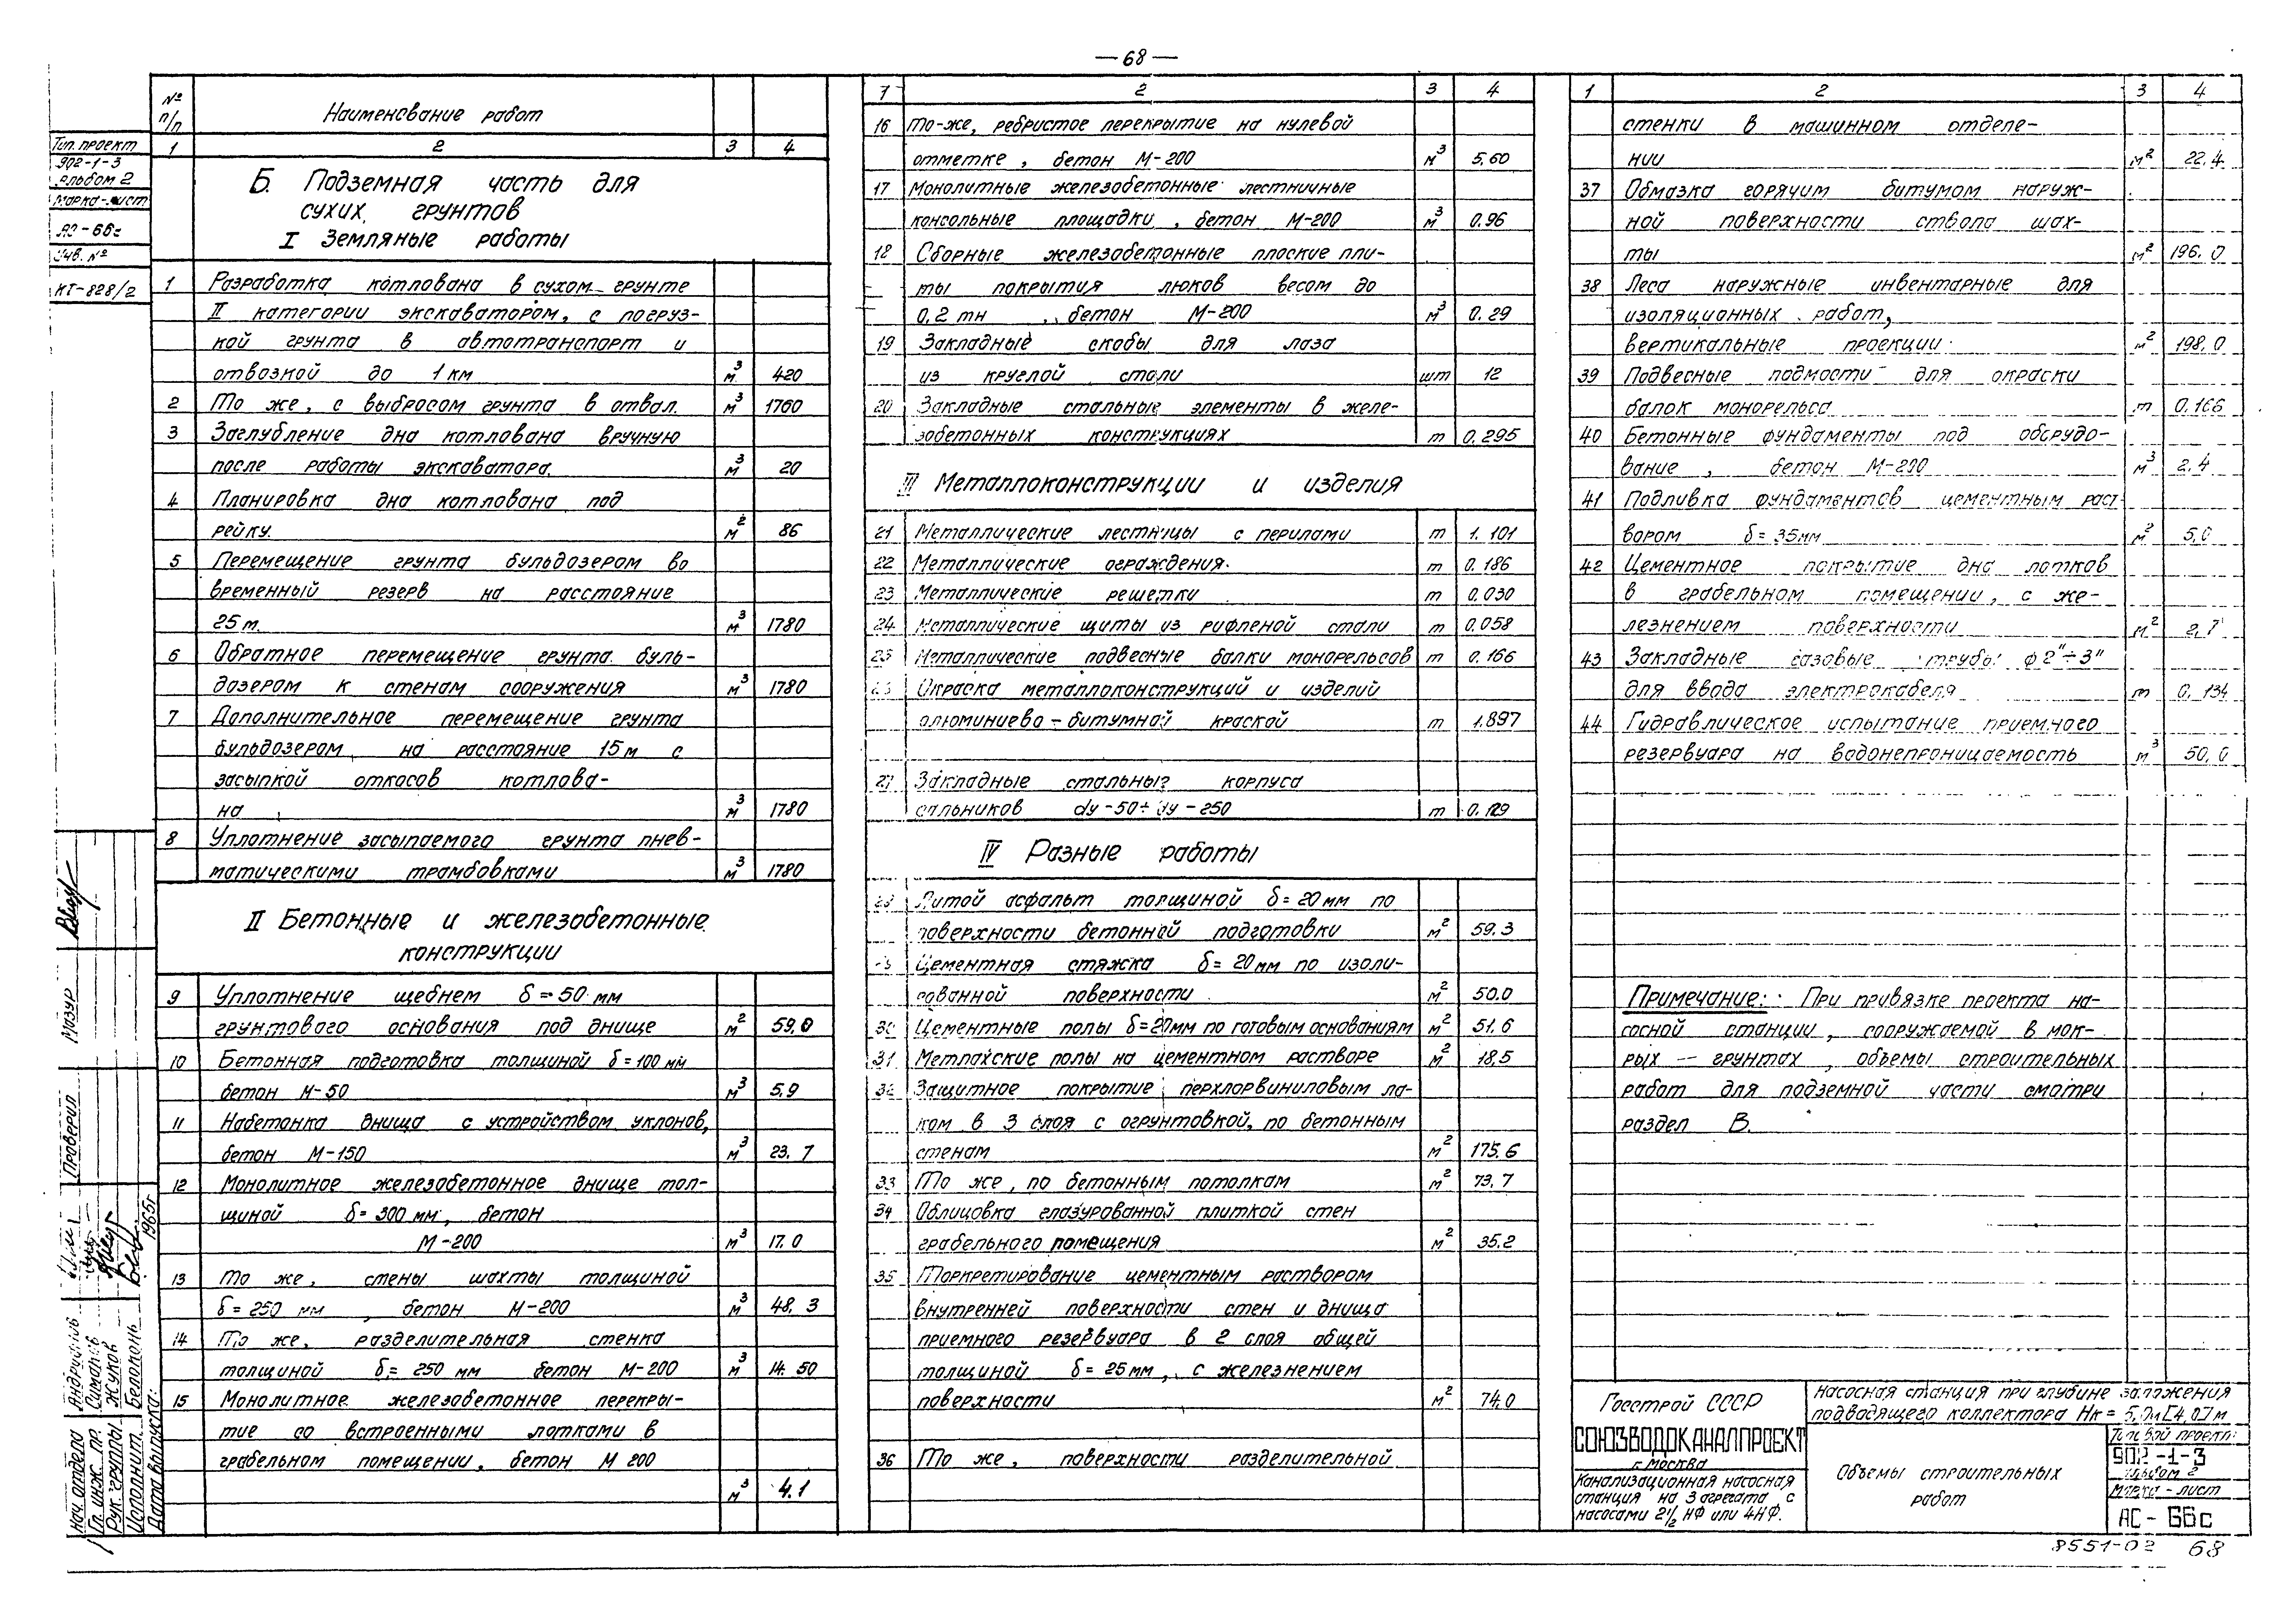 — 68 —
Тип. проект
902-1-3
альбом 2
Марка-лист
Инв. №
КТ-828/2
№ п/п
Наименование работ
1 2 3 4
Б. Подземная часть для
сухих грунтов
I Земляные работы
1 Разработка котлована в сухом грунте
II категории экскаватором, с погруз-
кой грунта в автотранспорт и
отвозкой до 1 км м³ 420
2 То же, с выбросом грунта в отвал. м³ 1760
3 Заглубление дна котлована вручную
после работы экскаватора. м³ 20
4 Планировка дна котлована под
рейку. м² 86
5 Перемещение грунта бульдозером во
временный резерв на расстояние
25 м. м³ 1780
6 Обратное перемещение грунта буль-
дозером к стенам сооружения м³ 1780
7 Дополнительное перемещение грунта
бульдозером на расстояние 15 м с
засыпкой откосов котлова-
на м³ 1780
8 Уплотнение засыпаемого грунта пнев-
матическими трамбовками м³ 1780
II Бетонные и железобетонные
конструкции
9 Уплотнение щебнем δ = 50 мм
грунтового основания под днище м² 59.0
10 Бетонная подготовка толщиной δ = 100 мм
бетон М-50 м³ 5.9
11 Набетонка днища с устройством уклонов,
бетон М-150 м³ 23.7
12 Монолитное железобетонное днище тол-
щиной δ = 300 мм, бетон
М-200 м³ 17.0
13 То же, стены шахты толщиной
δ = 250 мм, бетон М-200 м³ 48.3
14 То же, разделительная стенка
толщиной δ = 250 мм бетон М-200 м³ 14.50
15 Монолитное железобетонное перекры-
тие со встроенными лотками в
грабельном помещении, бетон М 200
м³ 4.1
1 2 3 4
16 То-же, ребристое перекрытие на нулевой
отметке, бетон М-200 м³ 5.60
17 Монолитные железобетонные лестничные
консольные площадки, бетон М-200 м³ 0.96
18 Сборные железобетонные плоские пли-
ты покрытия люков весом до
0,2 тн , бетон М-200 м³ 0.29
19 Закладные скобы для лаза
из круглой стали шт 12
20 Закладные стальные элементы в желе-
зобетонных конструкциях т 0.295
III Металлоконструкции и изделия
21 Металлические лестницы с перилами т 1.101
22 Металлические ограждения. т 0.186
23 Металлические решетки т 0.030
24 Металлические щиты из рифленой стали т 0.058
25 Металлические подвесные балки монорельсов т 0.166
26 Окраска металлоконструкций и изделий
алюминиево-битумной краской т 1.897
27 Закладные стальные корпуса
сальников dу-50 ÷ dу-250 т 0.129
IV Разные работы
28 Литой асфальт толщиной δ = 20 мм по
поверхности бетонной подготовки м² 59.3
29 Цементная стяжка δ = 20 мм по изоли-
рованной поверхности м² 50.0
30 Цементные полы δ = 20 мм по готовым основаниям м² 51.6
31 Метлахские полы на цементном растворе м² 18,5
32 Защитное покрытие перхлорвиниловым ла-
ком в 3 слоя с огрунтовкой, по бетонным
стенам м² 175.6
33 То же, по бетонным потолкам м² 73.7
34 Облицовка глазурованной плиткой стен
грабельного помещения м² 35.2
35 Торкретирование цементным раствором
внутренней поверхности стен и днища
приемного резервуара в 2 слоя общей
толщиной δ = 25 мм, с железнением
поверхности м² 74.0
36 То же, поверхности разделительной
1 2 3 4
стенки в машинном отделе-
нии м² 22.4
37 Обмазка горячим битумом наруж-
ной поверхности ствола шах-
ты м² 196.0
38 Леса наружные инвентарные для
изоляционных работ,
вертикальные проекции м² 198.0
39 Подвесные подмости для окраски
балок монорельса т 0.166
40 Бетонные фундаменты под оборудо-
вание, бетон М-200 м³ 2.4
41 Подливка фундаментов цементным раст-
вором δ = 35 мм м² 5,0
42 Цементное покрытие дна лотков
в грабельном помещении, с же-
лезнением поверхности м² 2,7
43 Закладные газовые трубы ϕ 2" ÷ 3"
для ввода электрокабеля т 0.134
44 Гидравлическое испытание приемного
резервуара на водонепроницаемость м³ 50.0
Примечание: При привязке проекта на-
сосной станции, сооружаемой в мок-
рых — грунтах, объемы строительных
работ для подземной части смотри
раздел В.
Госстрой СССР
СОЮЗВОДОКАНАЛПРОЕКТ
г. Москва
Канализационная насосная
станция на 3 агрегата с
насосами 2½ НФ или 4НФ.
Насосная станция при глубине заложения
подводящего коллектора Нк = 5,0м [4,0] м
Объемы строительных
работ
Типовой проект:
902-1-3
альбом 2
Марка-лист
АС-66с
8551-02 68
Мазур
Проверил
1965г
Нач. отдела
Гл. инж. пр. Симанов
Рук. группы Жуков
Исполнит. Белоконь
Дата выпуска: